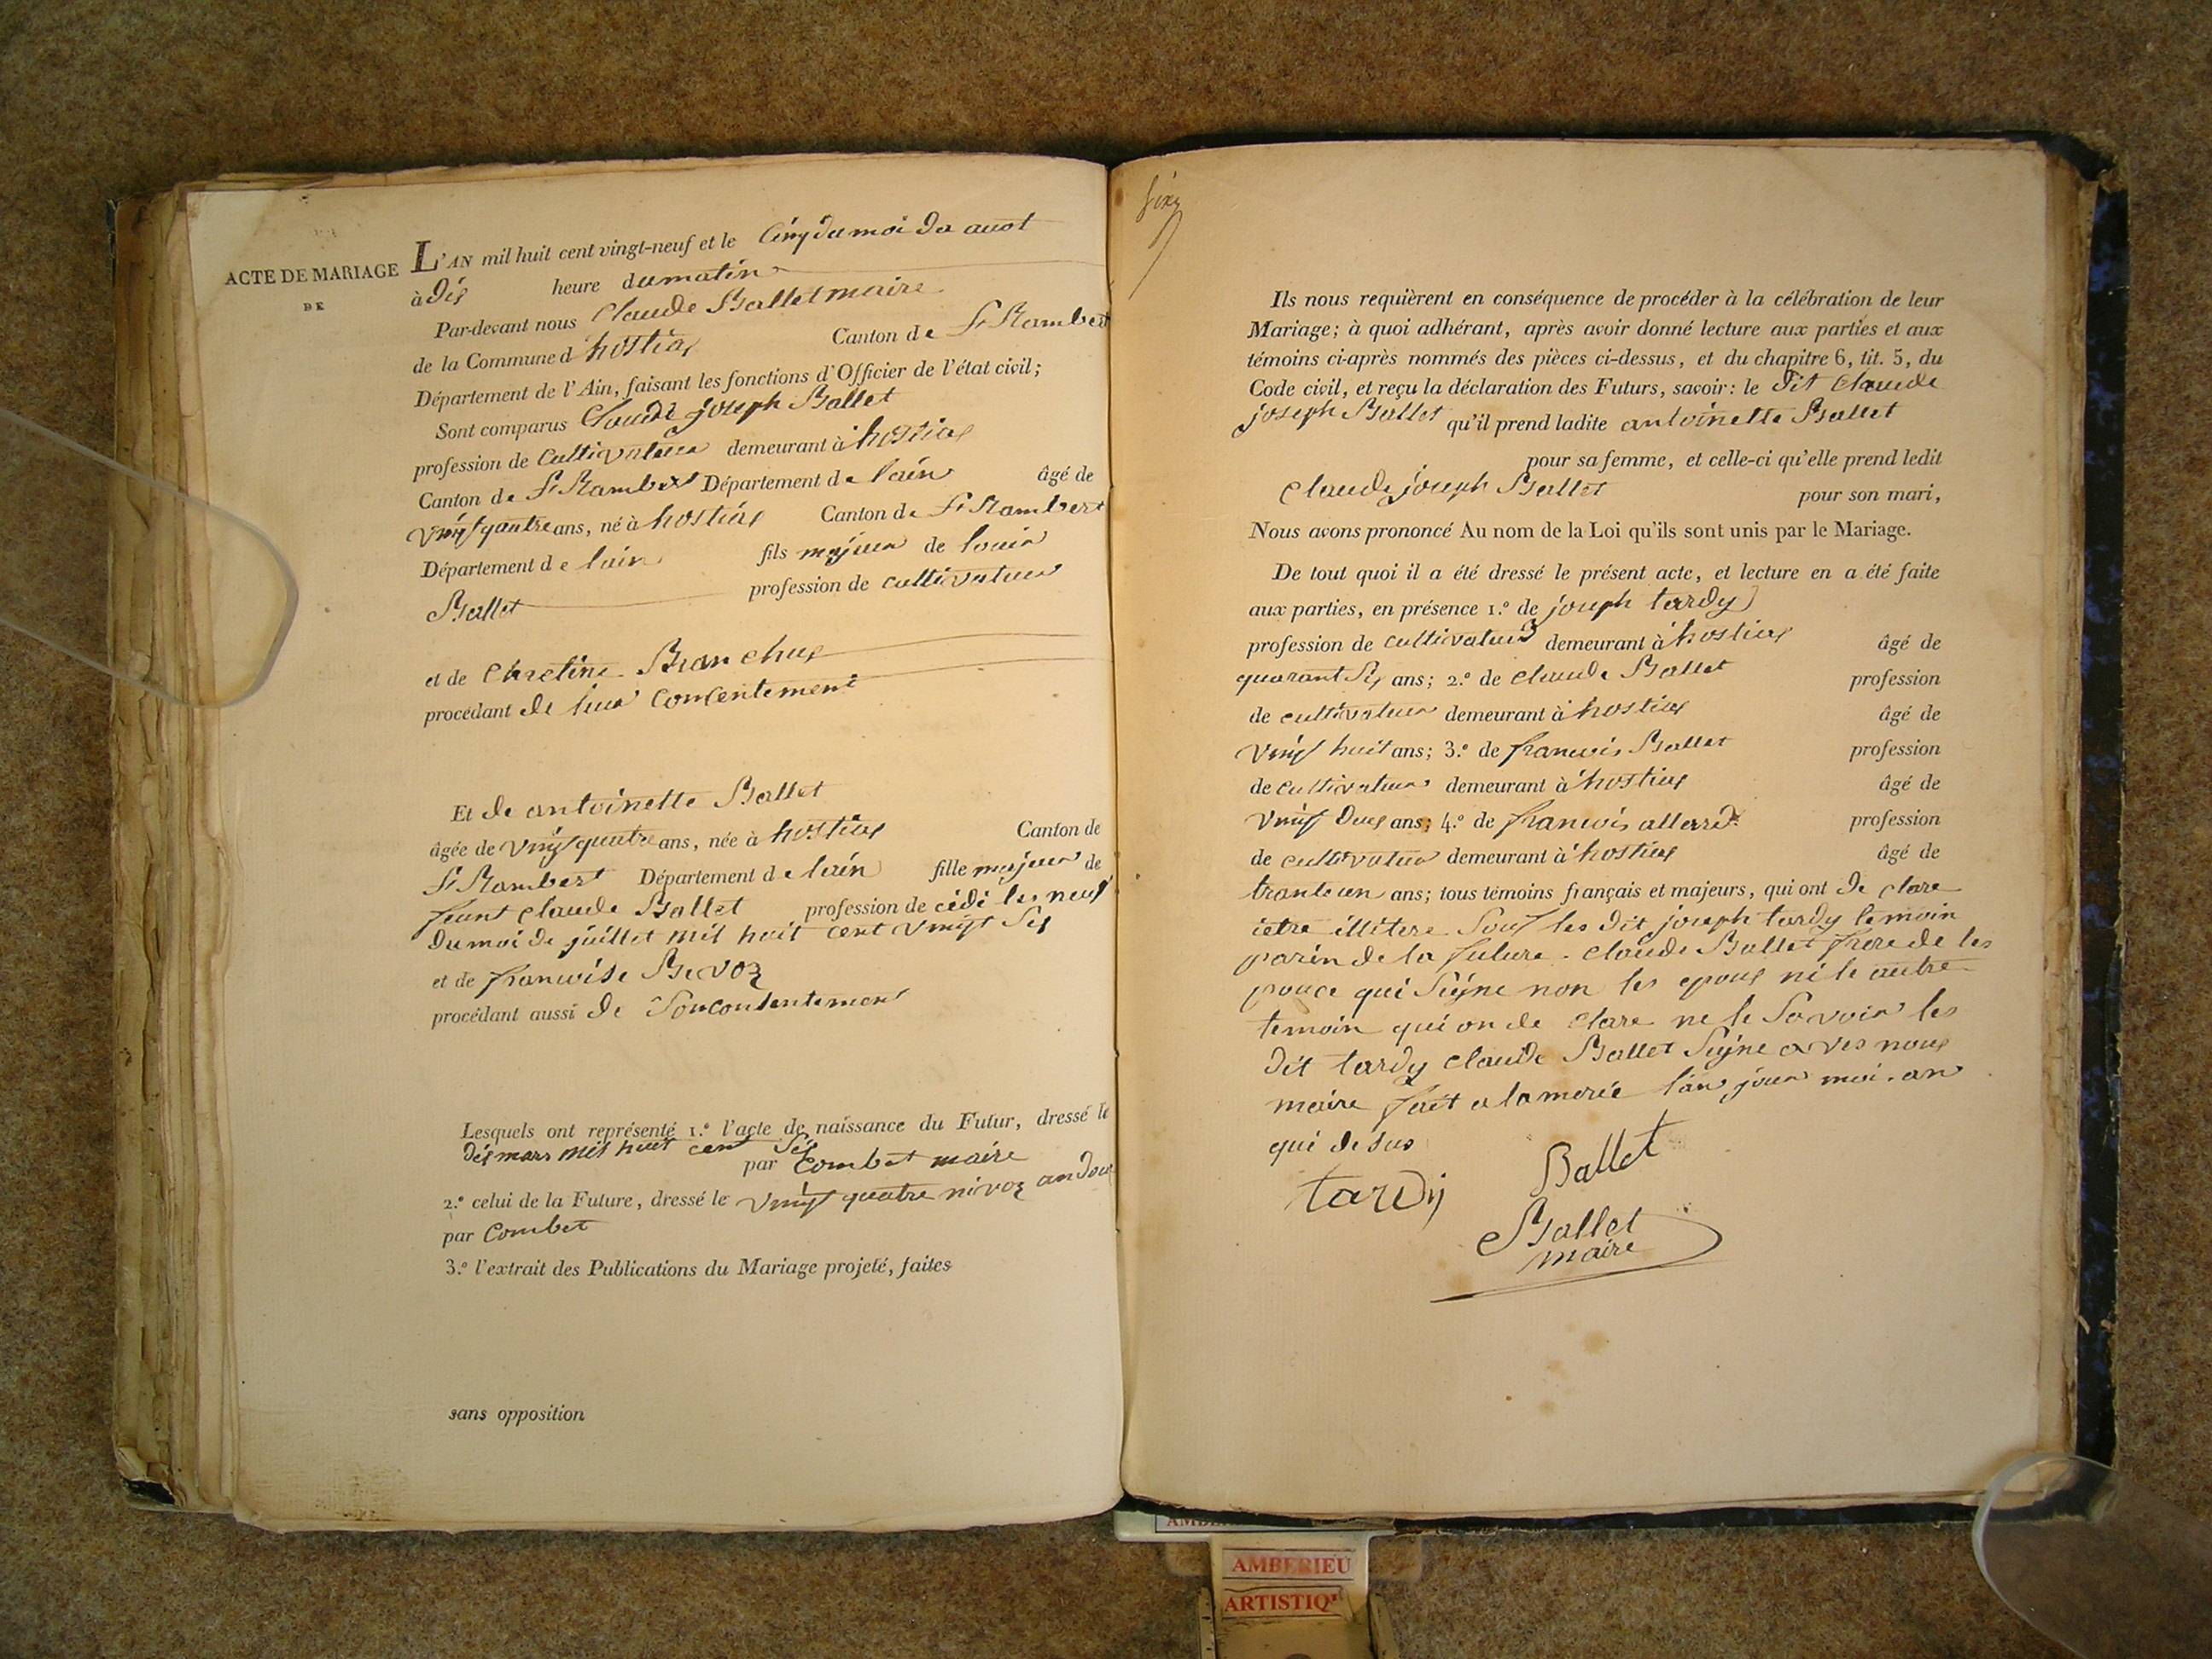 ACTE DE MARIAGE
DE
L'AN mil huit cent vingt-neuf et le Cinq du moi du auot
à dix heure du matin
Par-devant nous Claude Ballet maire
de la Commune d'hostiax Canton de St Rambert
Département de l'Ain, faisant les fonctions d'Officier de l'état civil;
Sont comparus Claude joseph Ballet
profession de Cultivateur demeurant à hostiax
Canton de St Rambert Département de lain âgé de
vingt quatre ans, né à hostiax Canton de St Rambert
Département de lain fils majeur de louis
Ballet profession de cultivateur
et de Chretine Branchux
procédant de leur Consentement
Et de antoinette Ballet
âgée de vingt quatre ans, née à hostiax Canton de
St Rambert Département de lain fille majeur de
feunt Claude Ballet profession de cédé les neuf
du moi de juillet mil huit cent vingt six
et de francoise Bevoz
procédant aussi de Son consentement
Lesquels ont représenté 1.º l'acte de naissance du Futur, dressé le
dix mars mil huit cent six
par Combet maire
2.º celui de la Future, dressé le vingt quatre nivoz an doux
par Combet
3.º l'extrait des Publications du Mariage projeté, faites
sans opposition
Sixx
Ils nous requièrent en conséquence de procéder à la célébration de leur
Mariage; à quoi adhérant, après avoir donné lecture aux parties et aux
témoins ci-après nommés des pièces ci-dessus, et du chapitre 6, tit. 5, du
Code civil, et reçu la déclaration des Futurs, savoir: le dit Claude
joseph Ballet qu'il prend ladite antoinette Ballet
pour sa femme, et celle-ci qu'elle prend ledit
Claude joseph Ballet pour son mari,
Nous avons prononcé Au nom de la Loi qu'ils sont unis par le Mariage.
De tout quoi il a été dressé le présent acte, et lecture en a été faite
aux parties, en présence 1.º de joseph tardy
profession de cultivateur demeurant à hostiax âgé de
quarant six ans; 2.º de claude Ballet profession
de cultivateur demeurant à hostiax âgé de
vingt huit ans; 3.º de francois Ballet profession
de cultivateur demeurant à hostiax âgé de
vingt deux ans; 4.º de francois allerred profession
de cultivateur demeurant à hostiax âgé de
trante un ans; tous témoins français et majeurs, qui ont de clare
ietre illitere Souf les dit joseph tardy temoin
parin de la future. Claude Ballet frere de les
pouce qui Signe non les epoux ni le autre
temoin qui on de clare ne le Savoir les
dit tardy Claude Ballet Signe aves nous
maire fait a la merie l'an jour moi. an
qui de sus
Ballet
tardy
Ballet
maire
AMBERIEU
ARTISTIQ